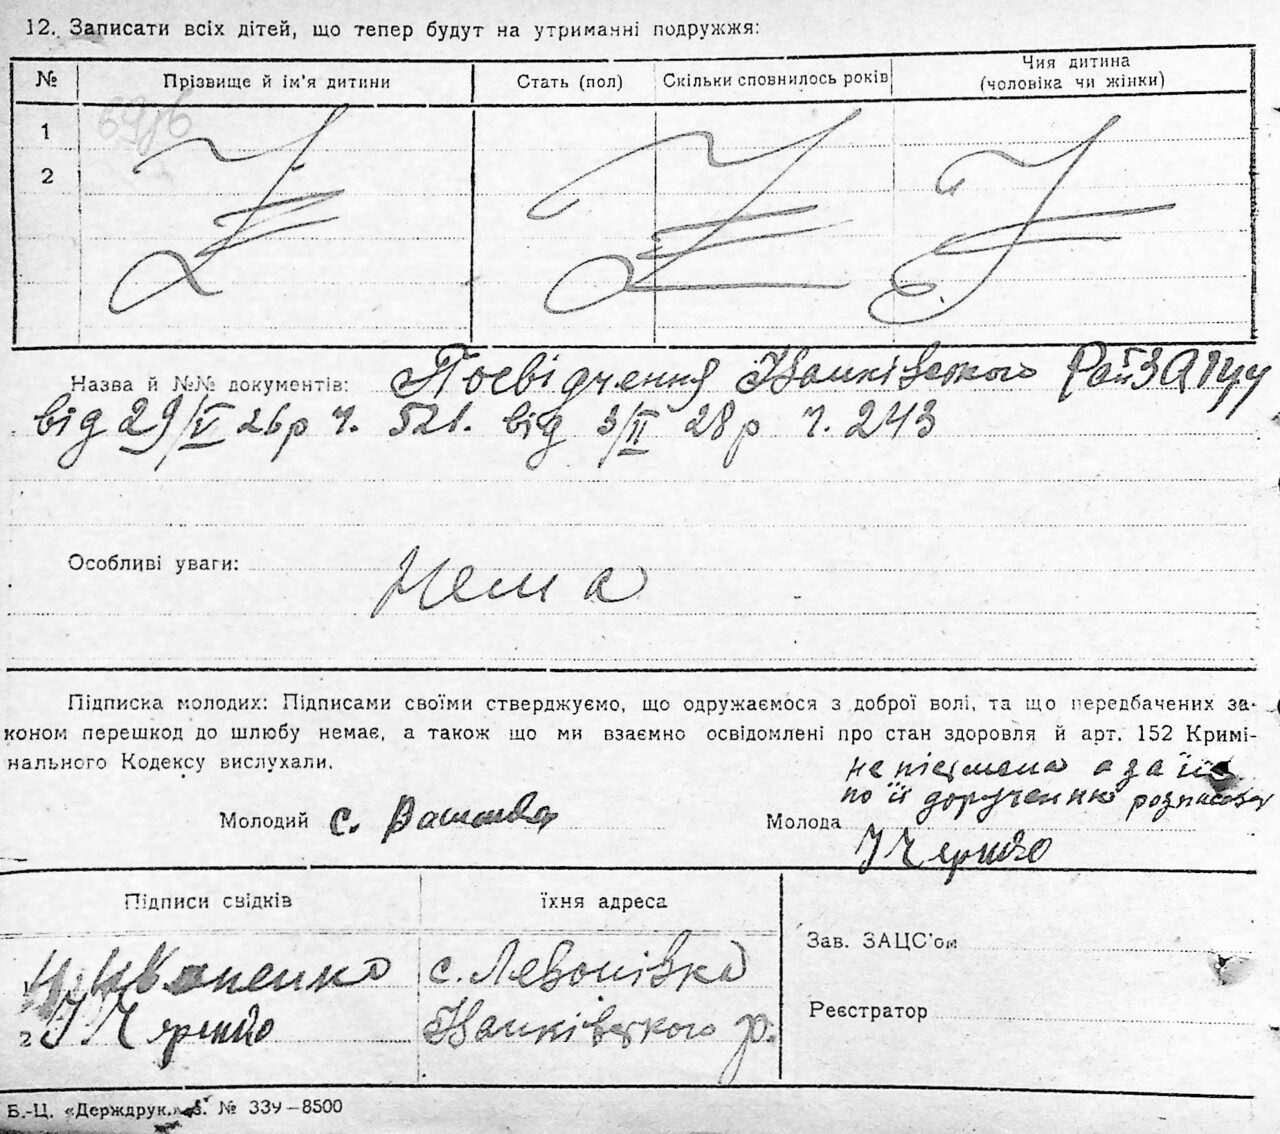 12. Записати всіх дітей, що тепер будут на утриманні подружжя:
№ Прізвище й ім'я дитини Стать (пол) Скільки сповнилось років Чия дитина (чоловіка чи жінки)
1
2
Назва й №№ документів: Посвідчення Іванківського РайЗАГСу
від 29/V 26р ч. 521. від 3/II 28р ч. 243
Особливі уваги: Нема
Підписка молодих: Підписами своїми стверджуємо, що одружаємося з доброї волі, та що передбачених за-
коном перешкод до шлюбу немає, а також що ми взаємно освідомлені про стан здоровля й арт. 152 Кримі-
нального Кодексу вислухали.
не письмена а за її
по її дорученню
Молодий с. Молода
Підписи свідків їхня адреса
1 Іваненко с. Леонівка
2 Іванківського р.
Зав. ЗАЦС'ом
Реєстратор
Б.-Ц. «Держдрук.» З. № 339—8500